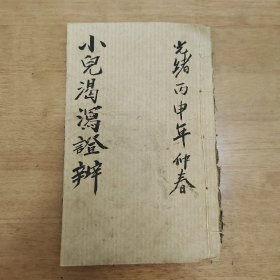 光緒丙申年仲春
小兒渴瀉證辨